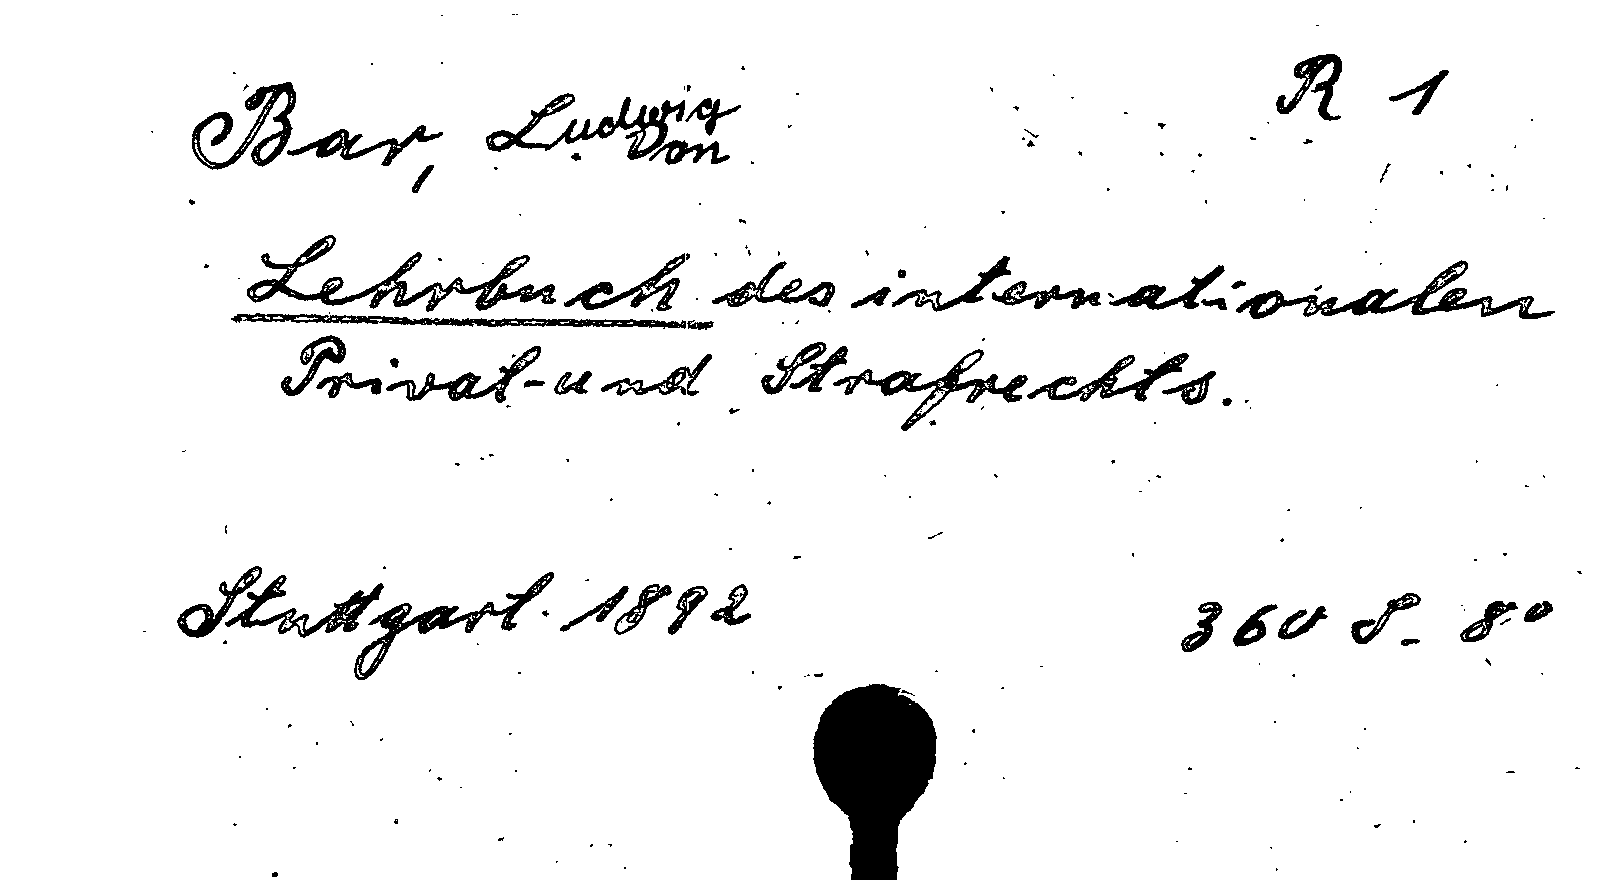 R 1
Bar, Ludwig von
Lehrbuch des internationalen
Privat-und Strafrechts.
Stuttgart. 1892 360 S. 8°